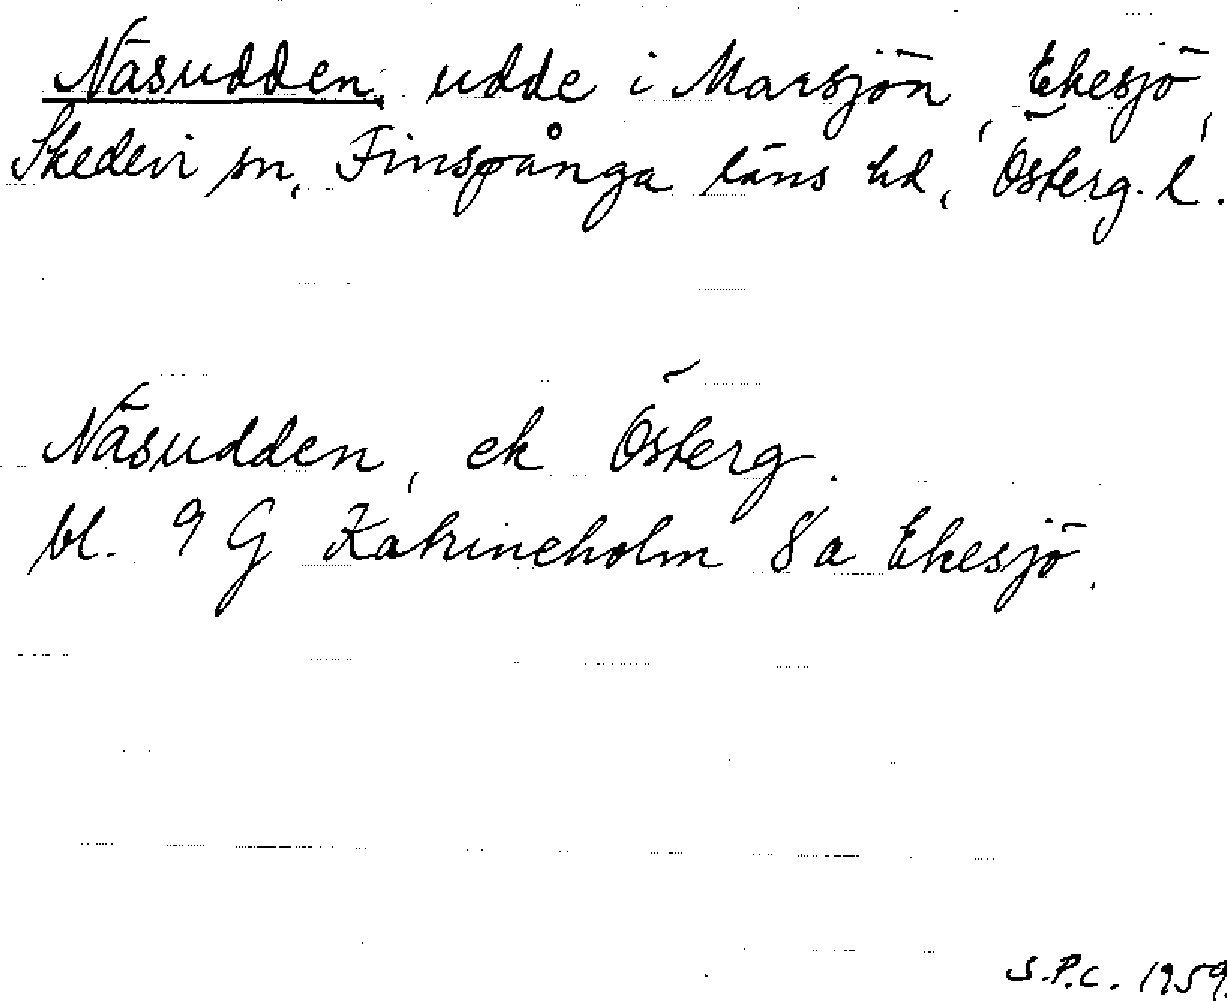 Näsudden, udde i Marsjön, Ekesjö,
Skedevi sn, Finspånga läns hd, Österg. l.
Näsudden, ek Österg.
bl. 9 G Katrineholm 8 a Ekesjö.
S.P.C. 1959.